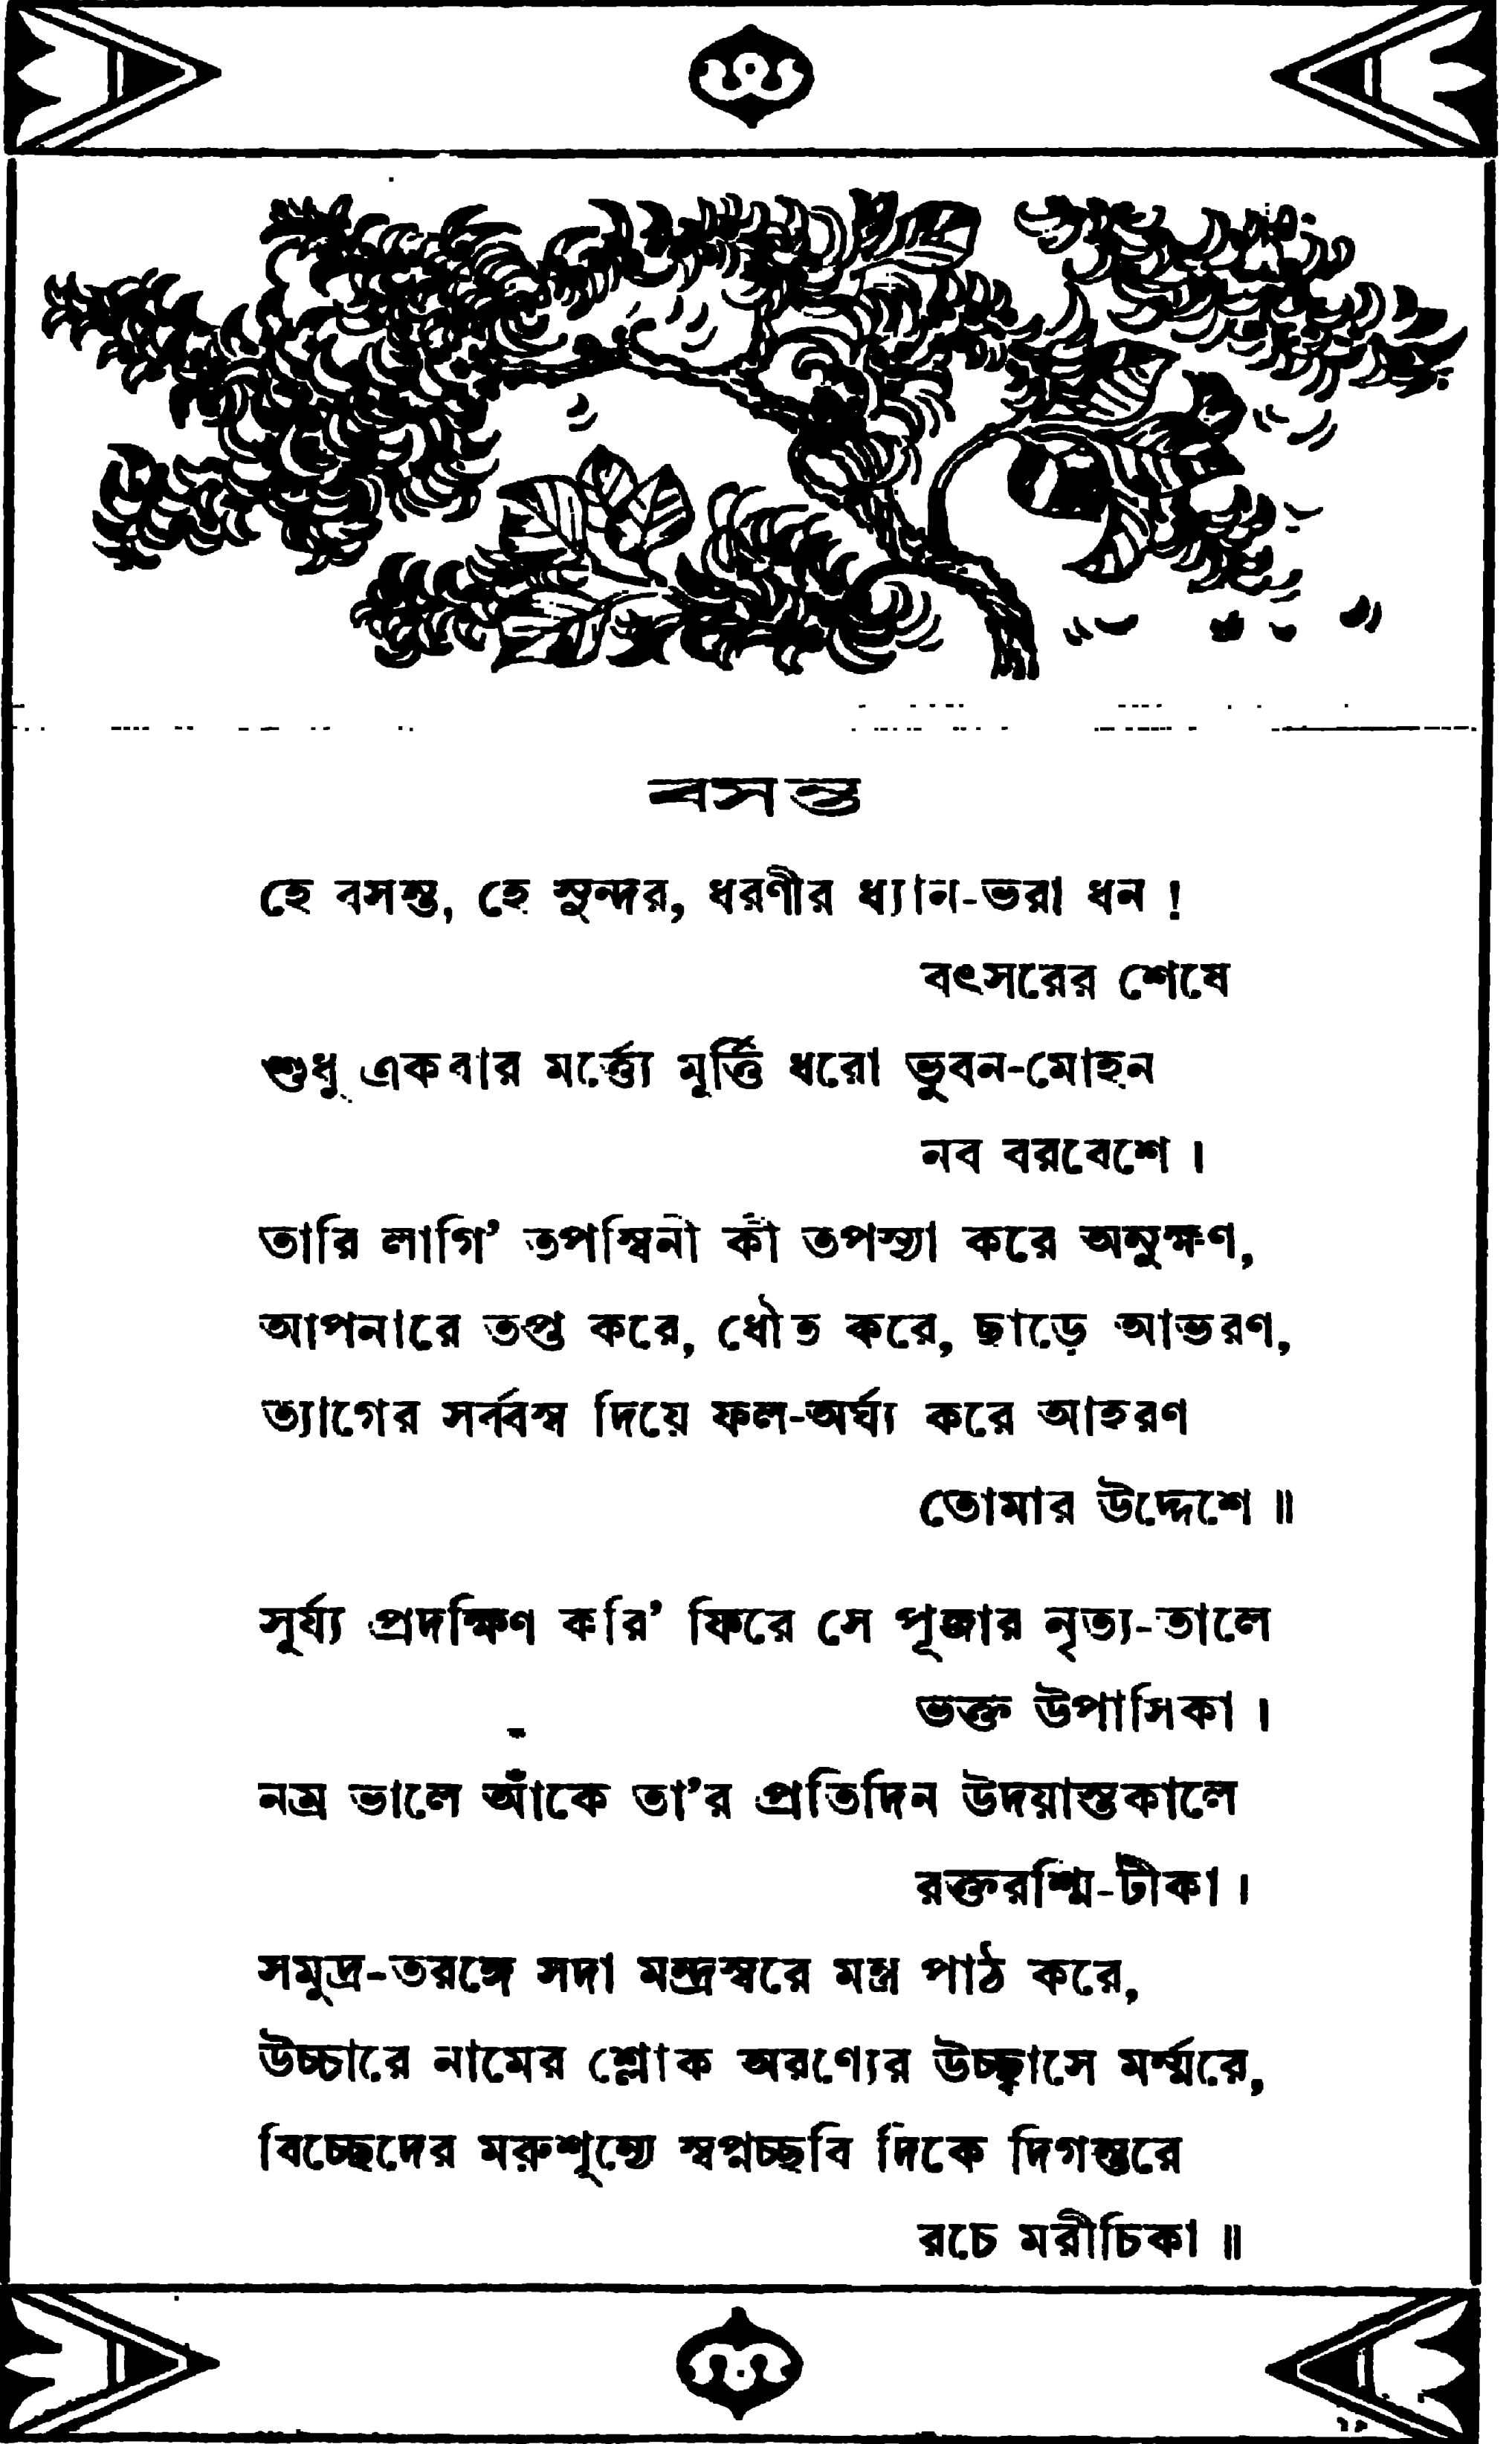 বসন্ত
হে বসন্ত, হে সুন্দর, ধরণীর ধ্যান-ভরা ধন !
বৎসরের শেষে
শুধু একবার মর্ত্ত্যে মূর্ত্তি ধরো ভুবন-মোহন
নব বরবেশে ।
তারি লাগি’ তপস্বিনী কী তপস্যা করে অনুক্ষণ,
আপনারে তপ্ত করে, ধৌত করে, ছাড়ে আভরণ,
ত্যাগের সর্ব্বস্ব দিয়ে ফল-অর্ঘ্য করে আহরণ
তোমার উদ্দেশে ॥
সূর্য্য প্রদক্ষিণ করি’ ফিরে সে পূজার নৃত্য-তালে
ভক্ত উপাসিকা ।
নম্র ভালে আঁকে তা’র প্রতিদিন উদয়াস্তকালে
রক্তরশ্মি-টীকা ।
সমুদ্র-তরঙ্গে সদা মন্দ্রস্বরে মন্ত্র পাঠ করে,
উচ্চারে নামের শ্লোক অরণ্যের উচ্ছ্বাসে মর্ম্মরে,
বিচ্ছেদের মরুশূন্যে স্বপ্নচ্ছবি দিকে দিগন্তরে
রচে মরীচিকা ॥